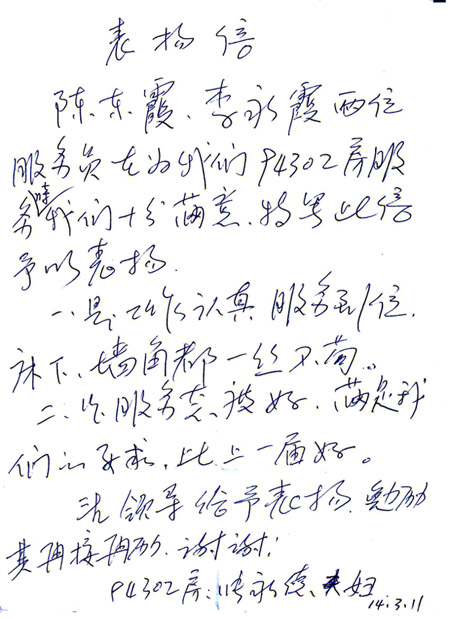 表扬信
陈东霞、李永霞两位
服务员在为我们P4302房服
务时我们十分满意,特写此信
予以表扬.
一、是工作认真服务到位.
床下、墙角都一丝不苟。
二、是服务态度好、满足我
们的要求,比上一届好。
请领导给予表扬,勉励
其再接再励,谢谢!
P4302房:张永德、夫妇
14.3.11